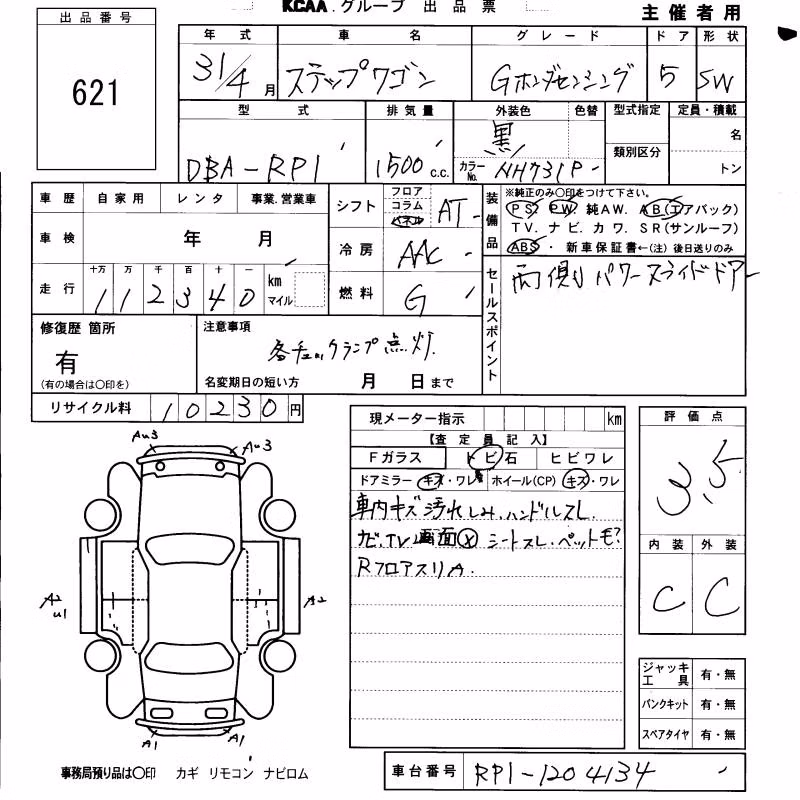 KCAA.グループ 出品票
主催者用
出品番号
621
年式 車名 グレード ドア 形状
31/4月 ステップワゴン Gホンダセンシング 5 SW
型式 排気量 外装色 色替 型式指定 定員・積載
DBA-RP1 1500 c.c. 黒 名
カラーNo. NH731P 類別区分 トン
車歴 自家用 レンタ 事業.営業車
車検 年 月
走行 十万 万 千 百 十 一
112340 km マイル
シフト フロア コラム パネル AT
冷房 AAC
燃料 G
装備品
※純正のみ〇印をつけて下さい。
PS. PW. 純AW. AB(エアバック)
TV. ナビ. カワ. SR(サンルーフ)
ABS・新車保証書←(注)後日送りのみ
セールスポイント
両側パワースライドドアー
修復歴 箇所
有
(有の場合は〇印を)
注意事項
各チェックランプ点灯.
名変期日の短い方 月 日まで
リサイクル料 10230円
現メーター指示 km
【査定員記入】
Fガラス トビ石 ヒビワレ
ドアミラー キズ・ワレ ホイール(CP) キズ・ワレ
車内キズ汚れしみ.ハンドルスレ.
ナビ.TV画面Ⓧシートスレ.ペット毛?
RフロアスリA.
評価点
3.5
内装 外装
C C
ジャッキ工具 有・無
パンクキット 有・無
スペアタイヤ 有・無
AU3 AU3
A2 U1 A2
A1 A1
事務局預り品は〇印 カギ リモコン ナビロム
車台番号 RP1-1204134